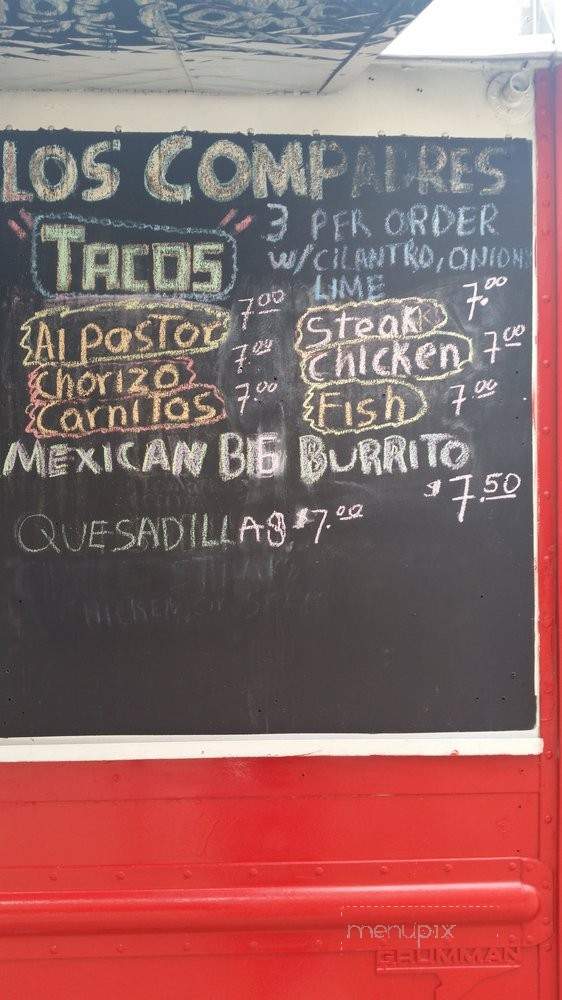 LOS COMPADRES
TACOS
3 PER ORDER
W/CILANTRO, ONION
LIME
Al Pastor 7.00
Chorizo 7.00
Carnitas 7.00
Steak 7.00
Chicken 7.00
Fish 7.00
MEXICAN BIG BURRITO
$7.50
QUESADILLAS $7.00
menupix
GRUMMAN